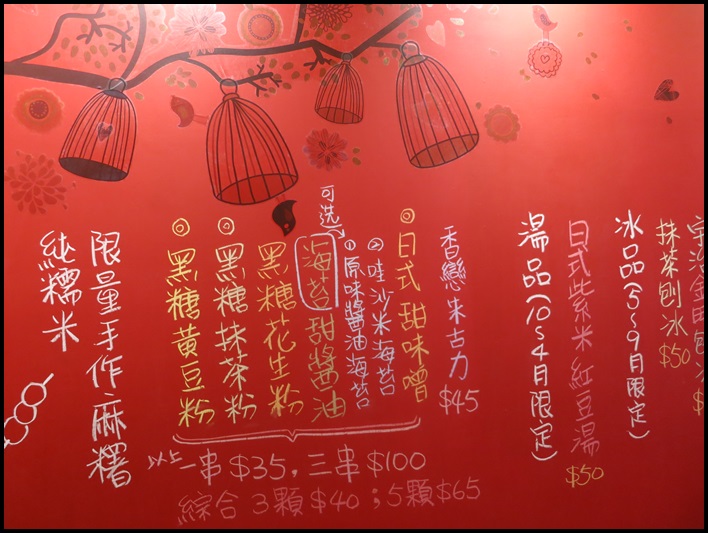 限量手作麻糬
純糯米
◎黑糖黃豆粉
◎黑糖抹茶粉
黑糖花生粉
海苔甜醬油
可选
①原味醬油海苔
②哇沙米海苔
◎日式甜味噌
以上一串$35,三串$100
綜合3顆$40;5顆$65
香戀朱古力
$45
湯品(10~4月限定)
日式紫米紅豆湯
$50
冰品(5~9月限定)
抹茶刨冰
$50